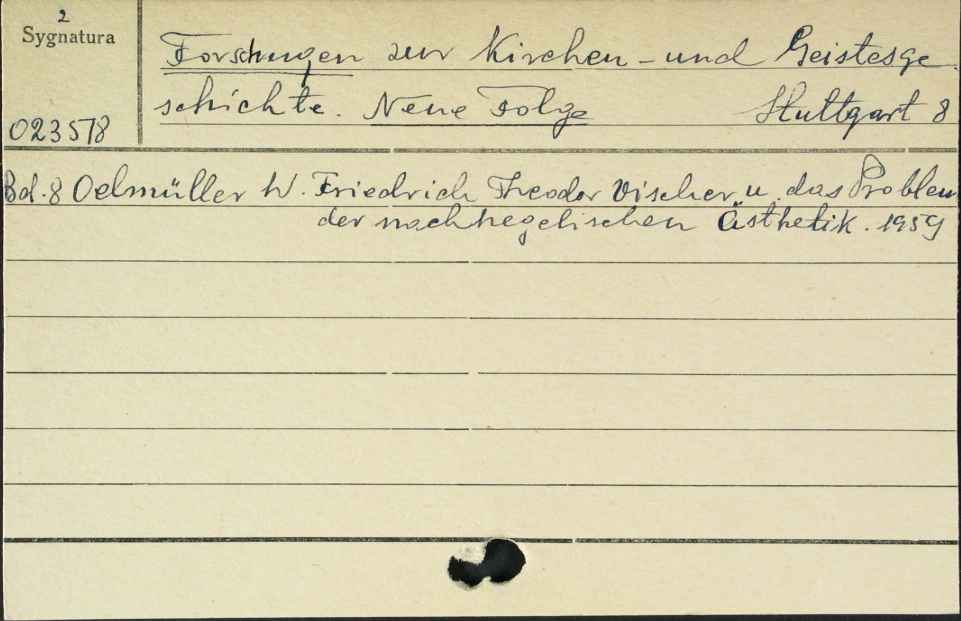 2
Sygnatura
023578
Forschugen zur Kirchen-und Geistesge
schichte. Neue Folge Stuttgart 8
Bd.8 Oelmüller W. Friedrich Theodor Vischer u. das Problem
der nachhegelischen Ästhetik. 1959